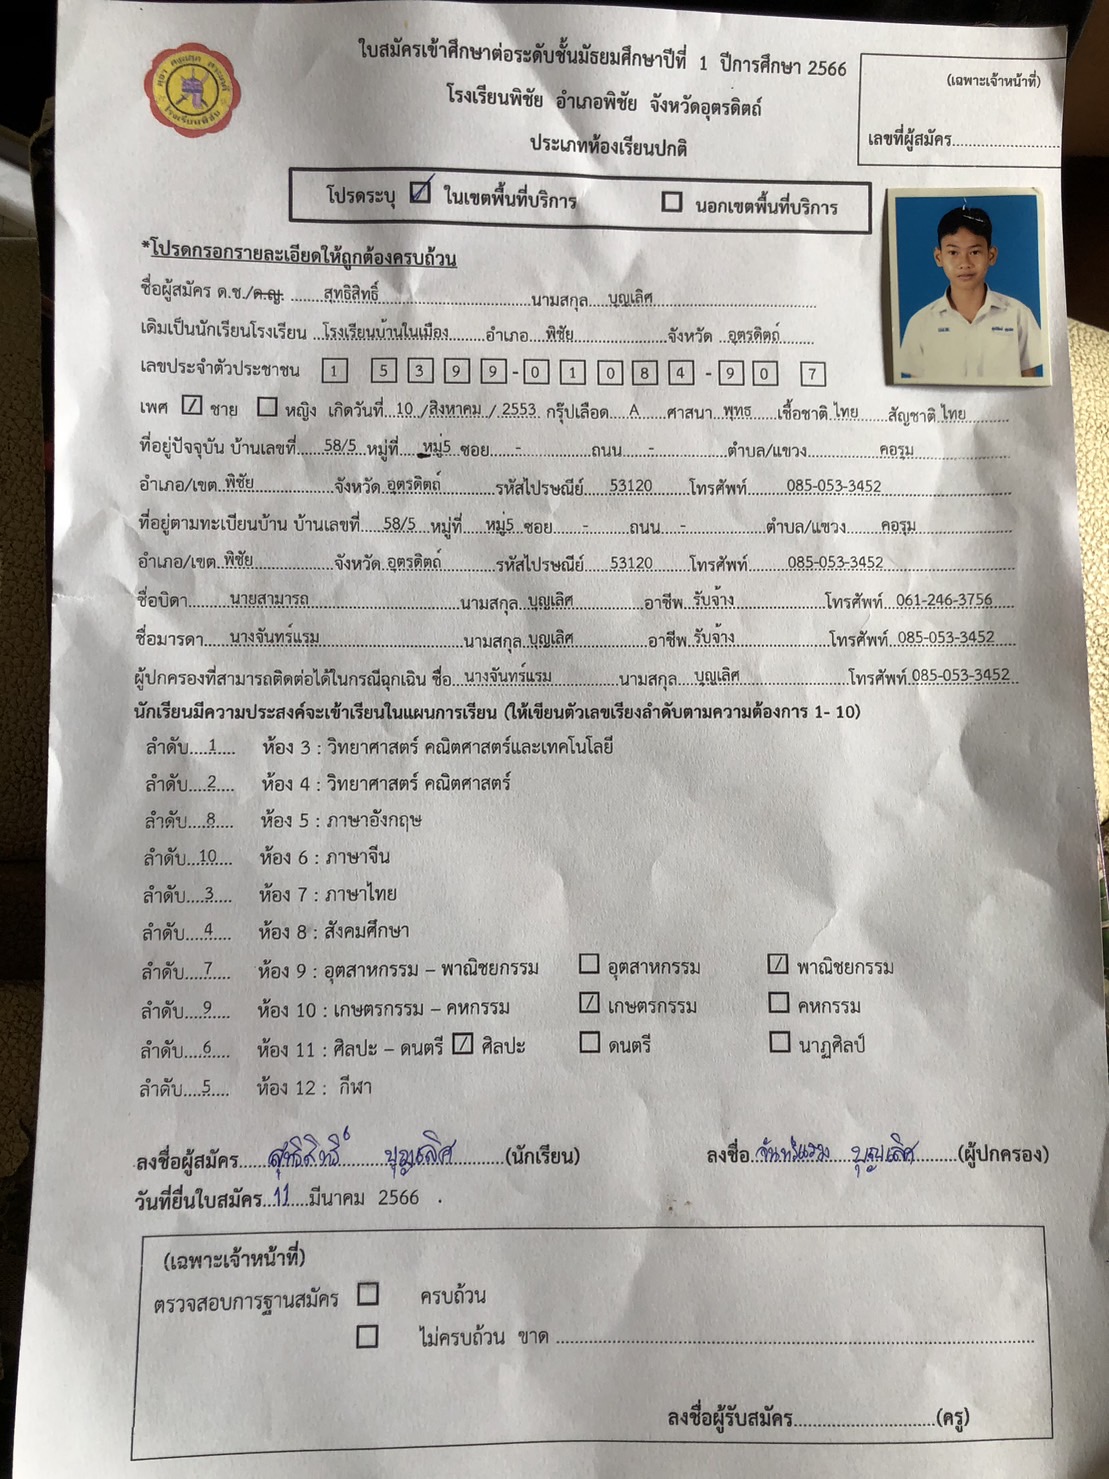 ใบสมัครเข้าศึกษาต่อระดับชั้นมัธยมศึกษาปีที่ 1 ปีการศึกษา 2566
โรงเรียนพิชัย อำเภอพิชัย จังหวัดอุตรดิตถ์
ประเภทห้องเรียนปกติ
(เฉพาะเจ้าหน้าที่)
เลขที่ผู้สมัคร
โรงเรียนพิชัย
โปรดระบุ ในเขตพื้นที่บริการ นอกเขตพื้นที่บริการ
*โปรดกรอกรายละเอียดให้ถูกต้องครบถ้วน
ชื่อผู้สมัคร ด.ช./ด.ญ. สุทธิสิทธิ์ นามสกุล บุญเลิศ
เดิมเป็นนักเรียนโรงเรียน โรงเรียนบ้านในเมือง อำเภอ พิชัย จังหวัด อุตรดิตถ์
เลขประจำตัวประชาชน 1 5 3 9 9 - 0 1 0 8 4 - 9 0 7
เพศ / ชาย หญิง เกิดวันที่ 10 / สิงหาคม / 2553 กรุ๊ปเลือด A ศาสนา พุทธ เชื้อชาติ ไทย สัญชาติ ไทย
ที่อยู่ปัจจุบัน บ้านเลขที่ 58/5 หมู่ที่ หมู่5 ซอย - ถนน - ตำบล/แขวง คอรุม
อำเภอ/เขต พิชัย จังหวัด อุตรดิตถ์ รหัสไปรษณีย์ 53120 โทรศัพท์ 085-053-3452
ที่อยู่ตามทะเบียนบ้าน บ้านเลขที่ 58/5 หมู่ที่ หมู่5 ซอย - ถนน - ตำบล/แขวง คอรุม
อำเภอ/เขต พิชัย จังหวัด อุตรดิตถ์ รหัสไปรษณีย์ 53120 โทรศัพท์ 085-053-3452
ชื่อบิดา นายสามารถ นามสกุล บุญเลิศ อาชีพ รับจ้าง โทรศัพท์ 061-246-3756
ชื่อมารดา นางจันทร์แรม นามสกุล บุญเลิศ อาชีพ รับจ้าง โทรศัพท์ 085-053-3452
ผู้ปกครองที่สามารถติดต่อได้ในกรณีฉุกเฉิน ชื่อ นางจันทร์แรม นามสกุล บุญเลิศ โทรศัพท์ 085-053-3452
นักเรียนมีความประสงค์จะเข้าเรียนในแผนการเรียน (ให้เขียนตัวเลขเรียงลำดับตามความต้องการ 1- 10)
ลำดับ 1 ห้อง 3 : วิทยาศาสตร์ คณิตศาสตร์และเทคโนโลยี
ลำดับ 2 ห้อง 4 : วิทยาศาสตร์ คณิตศาสตร์
ลำดับ 8 ห้อง 5 : ภาษาอังกฤษ
ลำดับ 10 ห้อง 6 : ภาษาจีน
ลำดับ 3 ห้อง 7 : ภาษาไทย
ลำดับ 4 ห้อง 8 : สังคมศึกษา
ลำดับ 7 ห้อง 9 : อุตสาหกรรม – พาณิชยกรรม อุตสาหกรรม / พาณิชยกรรม
ลำดับ 9 ห้อง 10 : เกษตรกรรม – คหกรรม / เกษตรกรรม คหกรรม
ลำดับ 6 ห้อง 11 : ศิลปะ – ดนตรี / ศิลปะ ดนตรี นาฏศิลป์
ลำดับ 5 ห้อง 12 : กีฬา
ลงชื่อผู้สมัคร สุทธิสิทธิ์ บุญเลิศ (นักเรียน) ลงชื่อ จันทร์แรม บุญเลิศ (ผู้ปกครอง)
วันที่ยื่นใบสมัคร 11 มีนาคม 2566 .
(เฉพาะเจ้าหน้าที่)
ตรวจสอบการฐานสมัคร ครบถ้วน
ไม่ครบถ้วน ขาด
ลงชื่อผู้รับสมัคร (ครู)